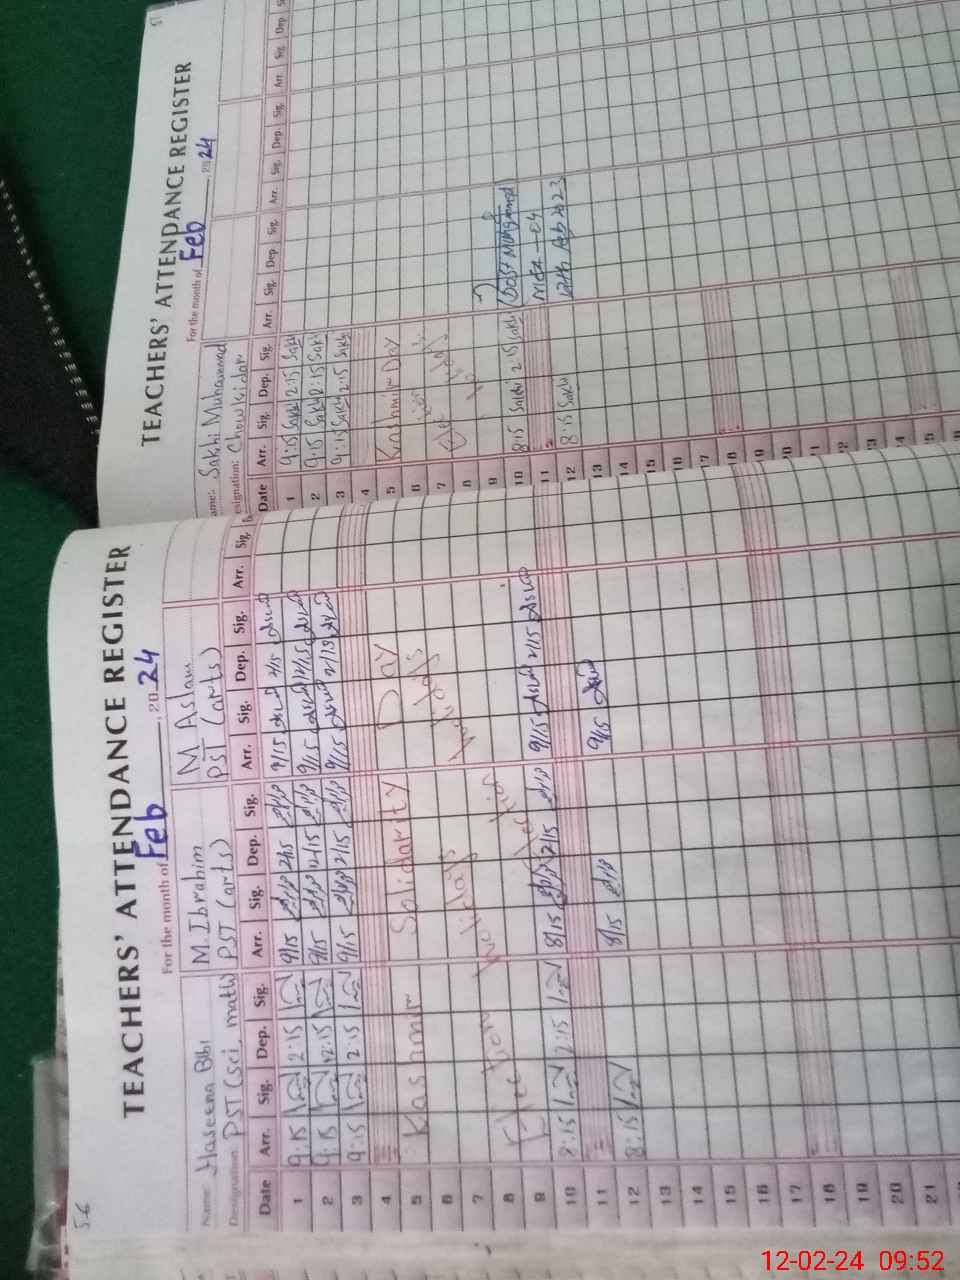 56
TEACHERS' ATTENDANCE REGISTER
For the month of Feb, 20 24
Name: Haseena Bibi M. Ibrahim M Aslam
Designation: PST (sci, math) PST (arts) PST (arts)
Date Arr. Sig. Dep. Sig. Arr. Sig. Dep. Sig. Arr. Sig. Dep. Sig. Arr. Sig.
1 9:15 2:15 9/15 2/15 9/15 2/15
2 9:15 12:15 9/15 12/15 9/15 12/15
3 9:15 2:15 9/15 2/15 9/15 2/15
4
5 Kashmir Solidarity Day
6
7
8 Election holidays Election holidays
9
10 8:15 2:15 8/15 2/15 9/15 2/15
11
12 8:15 8/15 9/15
13
14
15
16
17
18
19
20
21
TEACHERS' ATTENDANCE REGISTER
For the month of Feb, 20 24
ame: Sakhi Muhammad
esignation: Chowkidar
Date Arr. Sig. Dep. Sig. Arr. Sig. Dep. Sig. Arr. Sig. Dep. Sig. Arr. Sig. Dep.
1 9:15 Sakhi 2:15 Sakhi
2 9:15 Sakhi 2:15 Sakhi
3 9:15 Sakhi 2:15 Sakhi
4
5 Kashmir Day
6
7
8
9
10 8:15 Sakhi 2:15 Sakhi Dost Muhammad
11 MEA-04
12 8:15 Sakhi 12th Feb 2023
13
14
15
16
17
18
12-02-24 09:52